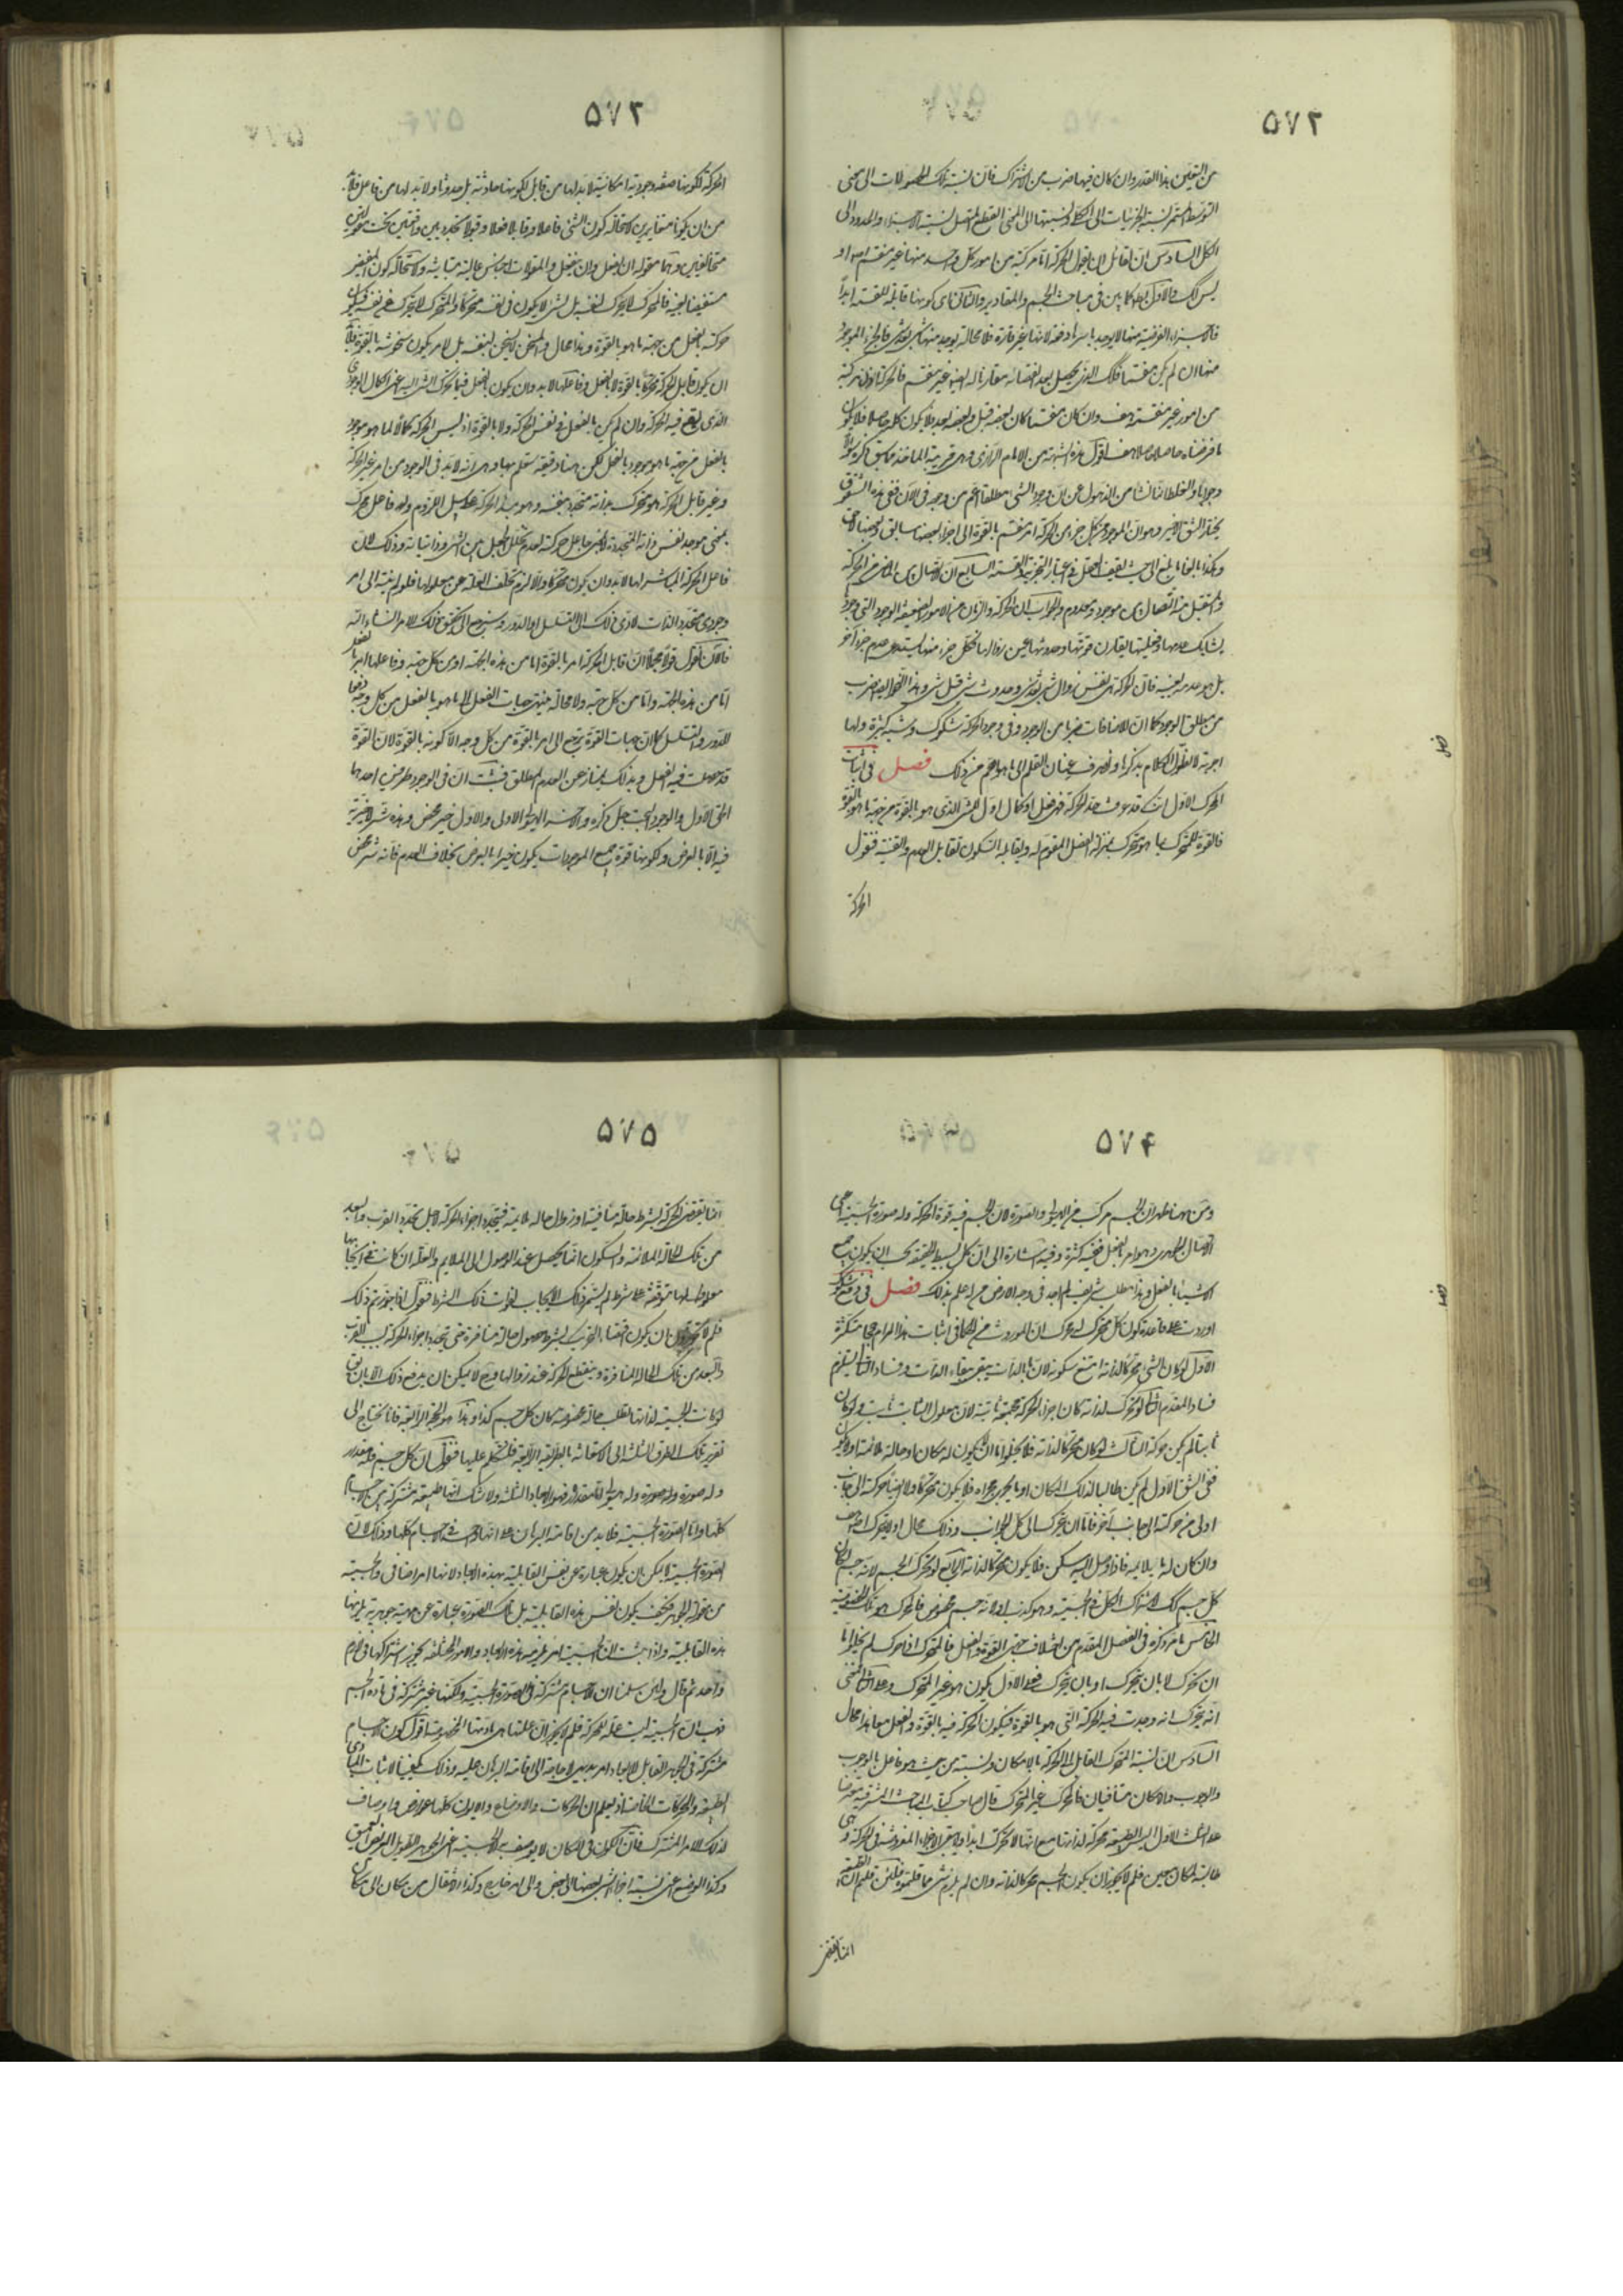 ٥٧٢
من اليقين بهذا القدر وان كان فيها ضرب من الاشتراك فان نسبة تلك الحصولات الى معنى
التوسط المستمر نسبة الجزئيات الى الكلى ونسبتها الى المعنى القطع المتصل نسبة الاجزاء والحدود الى
الكل السادس ان لقائل ان يقول الحركة اما مركبة من امور كل واحد منها غير منقسم اصلا و
ليس كك والاول باطل كما بين فى مباحث الجسم والمقادير والثانى كونها قابلة للقسمة ابدا
فالاجزاء الفرضية منها لا يوجد باسرها دفعة لانها غير قارة فلا محالة يوجد منها شئ بعد شئ فالجزء الموجود
منها ان لم يكن منقسما فكك الذى يحصل بعد انقضائه مقارنا له ايضا غير منقسم فالحركة اذن مركبة
من امور غير منقسمة هف وان كان منقسما كان بعضه قبل وبعضه بعد فلا يكون كله حاصلا فلا يكون
ما فرضناه حاصلا حاصلا هف اقول هذه الشبهة من الامام الرازى وهى قريبة المأخذ مما سبق ذكره
وجوابا والغلط انما نشأ من الذهول عن ان وجود الشئ مطلقا اعم من وجوده فى الآن ففى هذه الشقوق
يختار الشق الاخير وهو ان الموجود من كل جزء من الحركة امر منقسم بالقوة الى اجزاء بعضها سابق وبعضها لاحق
وهكذا بالغا ما بلغ الى حيث يقف العقل عن اعتبار التجزية والقسمة السابع ان لاتصال بين الماضى من الحركة
والمستقبل منها اتصال بين موجود ومعدوم والجواب ان الحركة والزمان من الامور الضعيفة الوجود التى وجودها
يشابك عدمها وفعليتها يقارن قوتها وحدوثها عين زوالها فكل جزء منها يستدعى عدم جزء آخر
بل هو عدمه بعينه فان الحركة هى نفس زوال شئ بعد شئ وحدوث شئ قبل شئ وهذا النحو ايضا ضرب
من مطلق الوجود كما ان للاضافات ضربا من الوجود وفى وجود الحركة شكوك وشبه كثيرة ولها
اجوبة لا نطول الكلام بذكرها ونصرف عنان القلم الى ما هو اهم من ذلك فصل فى اثبات
المحرك الاول انك قد عرفت حد الحركة فهى فعل او كمال اول للشئ الذى هو بالقوة من جهة ما هو بالقوة
فالقوة للمتحرك بما هو متحرك بمنزلة الفصل المقوم له ويقابله السكون تقابل العدم والقنية فنقول
الحركة
فصل
٥٧٣
الحركة لكونها صفة وجودية امكانية لابد لها من قابل لكونها حادثة بل حدوثا ولابد لها من فاعل فلابد
من ان يكونا متغايرين لاستحالة كون الشئ فاعلا وقابلا فعلا وقبولا تجدديين واقعين تحت مقولتين
متخالفتين وهما مقولة ان يفعل وان ينفعل والمقولات اجناس عالية متباينة ولاستحالة كون المفيض
مستفيضا بعينه فالمحرك لا يحرك نفسه بل لشئ لا يكون فى نفسه متحركا والمتحرك لا يتحرك عن نفسه فيكون
حركته بالفعل من جهة ما هو بالقوة وهذا محال والمسخن لا يسخن لنفسه بل لامر يكون سخونته بالقوة فلابد
ان يكون قابل الحركة متحركا بالقوة لا بالفعل وفاعلها لابد وان يكون بالفعل فيما يحرك الشئ اليه اعنى الكمال الوجودى
الذى يقع فيه الحركة وان لم يكن بالفعل فى نفس الحركة ولا بالقوة اذ ليس الحركة كمالا لما هو موجود
بالفعل من جهة ما هو موجود بالفعل لكن هنا دقيقة ستعلم بها وهى انه لابد فى الوجود من امر غير الحركة
وغير قابل الحركة هو متحرك بذاته متجدد بنفسه وهو مبدأ الحركة على سبيل اللزوم وله فاعل محرك
بمعنى موجد نفس ذاته المتجددة لا بمعنى جاعل حركته لعدم تخلل الجعل بين الشئ وذاتياته وذلك لان
فاعل الحركة المباشر لها لابد وان يكون متحركا والا لزم تخلف العلة عن معلولها فلو لم ينته الى امر
وجودى متجدد الذات لأدى ذلك الى التسلسل او الدور وسنرجع الى تحقيق ذلك الامر انشاء الله
فالآن نقول قولا مجملا ان قابل الحركة امر بالقوة اما من هذه الجهة او من كل جهة وفاعلها امر بالفعل
اما من هذه الجهة واما من كل جهة ولا محالة ينتهى جهات الفعل الى ما هو بالفعل من كل وجه دفعا
للدور والتسلسل كما ان جهات القوة ترجع الى امر بالقوة من كل وجه الا كونه بالقوة لان القوة
قد حصلت فيه بالفعل وبذلك يمتاز عن العدم المطلق فثبت ان فى الوجود طرفين احدهما
الحق الاول والوجود البحت جل ذكره والآخر الهيولى الاولى والاول خير محض وهذه شر لا خيرية
فيه الا بالعرض ولكونها قوة جميع الموجودات يكون خيرا بالعرض بخلاف العدم فانه شر محض
٥٧٤
ومن هيهنا ظهر ان الجسم مركب من الهيولى والصورة لان الجسم فيه قوة الحركة وله صورة الجسمية اعنى
الاتصال الجوهرى وهو امر بالفعل ففيه كثرة وفيه اشارة الى ان كل بسيط الحقيقة يجب ان يكون جميع
الاشياء بالفعل وهذا مطلب شريف لم اجد فى وجه الارض من له علم بذلك فصل فى دفع شكوك
اوردت على قاعدة كون كل متحرك له محرك ان الموروث من الحكما فى اثبات هذا المرام حجج متكثرة
الاول لو كان الشئ متحركا لذاته امتنع سكونه لان ما بالذات يبقى ببقاء الذات وفساد التالى يستلزم
فساد المقدم الثانى لو تحرك لذاته كان اجزاء الحركة مجتمعة ثابتة لان معلول الثابت ثابت ولو كان
ثابتا لم يكن حركة الثالث لو كان متحركا لذاته فلا يخلوا اما ان يكون له مكان او حالة ملائمة اولا يكون
ففى الشق الاول لم يكن طالبا لذلك المكان او ما يجرى مجراه فلا يكون متحركا ولا ايضا حركته الى جانب
اولى من حركته الى جانب آخر فاما ان يتحرك الى كل الجوانب وذلك محال او لا يتحرك اصلا هف
وان كان له ما يلايمه فاذا وصل اليه سكن فلا يكون متحركا لذاته الرابع لو تحرك الجسم لانه جسم لكان
كل جسم كك لاشتراك الكل فى الجسمية وهو كذب او لانه جسم مخصوص فالمحرك هو تلك الخصوصية
الخامس ما مر ذكره فى الفصل المقدم من اختلاف جهتى القوة والفعل فالمتحرك اذا حرك لم يخلوا اما
ان يحرك لا بان يتحرك او بان يتحرك فعلى الاول يكون هو غير المتحرك وعلى الثانى فمعنى
انه يتحرك انه وجدت فيه الحركة التى هو بالقوة فيكون الحركة فيه بالقوة والفعل معا هذا محال
السادس ان نسبة المتحرك القابل الى الحركة بالامكان ونسبته من حيث هو فاعل بالوجوب
والوجوب والامكان متنافيان فالمحرك غير المتحرك قال صاحب كتاب المباحث المشرقية معترضا
على الثلث الاول اليس الطبيعة محركة لذاتها مع انها لا تحرك ابدا ولا يبقى الاجزاء المفروضة فى الحركة وهى
طالبة لمكان معين فلم لا يجوز ان يكون الجسم متحركا لذاته وان لم يلزم شئ مما قلتموه فلئن قلتم ان الطبيعة
انما يقتضى
فصل
٥٧٥
انما يقتضى الحركة بشرط حالة منافية او زوال حالة ملايمة فيتجدد اجزاء الحركة لاجل تجدد القرب والبعد
من تلك الحالة الملائمة والسكون انما يحصل عند الوصول الى الملايم والعلة ان كانت فى ايجابها
معلولها متوقفة على شرط لم يستمر ذلك الايجاب لفوات ذلك الشرط فنقول اذا جوزتم ذلك
فلم لا تجوزون ان يكون اقتضاء التحريك بشرط حصول حالة منافرة حتى يتجدد اجزاء الحركة بسبب القرب
والبعد من تلك الحالة المنافرة وينقطع الحركة عند زوالها وح لا يمكن ان يدفع ذلك الا بان يق
لو كانت الجسمية لذاتها يطلب حالة مخصوصة كان كل جسم كذا وهذا هو الحجة الرابعة فاذا نحتاج الى
تقرير تلك الطرق الثلثة الى الاستعانة بالطريقة الرابعة فلنتكلم عليها فنقول ان كل جسم فله مقدار
وله صورة وله هيولى اما مقداره فهو الابعاد الثلثة ولا شك انها طبيعة مشتركة بين الاجسام
كلها واما الصورة الجسمية فلابد من اقامة البرهان على انها واحدة فى الاجسام كلها وذلك لان
الصورة الجسمية لا يمكن ان يكون عبارة عن نفس القابلية بهذه الابعاد لانها امر اضافى والجسمية
من مقولة الجوهر فكيف يكون نفس هذه القابلية بل تلك الصورة عبارة عن ماهية جوهرية يلزمها
هذه القابلية واذا ثبت ان الجسمية امر يلزمه هذه الابعاد والامور المختلفة يجوز اشتراكها فى لازم
واحد ثم قال ولئن سلمنا ان الاجسام مشتركة فى الصورة الجسمية ولكنها غير مشتركة فى مادة الجسم
فهب ان الجسمية ليست علة للحركة فلم لا يجوز ان علتها هى مادتها المخصوصة اقول كون الاجسام
مشتركة فى الجوهر القابل للابعاد امر بديهى لا حاجة الى اقامة البرهان عليه وذلك يكفينا لاثبات المبادى
الطبيعة والمحركات الخاصة اذ يعلم ان الحركات والاوضاع والايون كلها عوارض واوصاف
لذلك الامر المشترك فان الكون فى المكان لا يوصف به الا الجسمية اعنى الجوهر الطويل العريض العميق
وكذا الوضع اعنى نسبة اجزاء الشئ بعضها الى بعض والى امر خارج وكذا الانتقال من مكان الى مكان